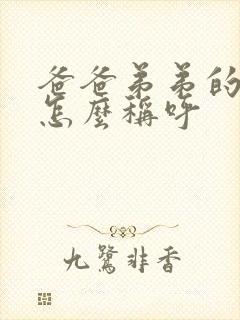 爸爸弟弟的
怎麼稱呼
九鷺非香